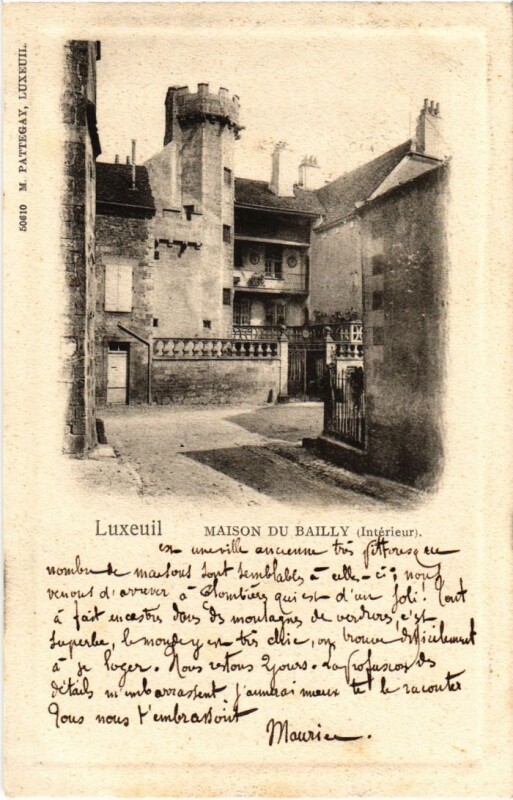 50610 M. PATTEGAY, LUXEUIL.
Luxeuil MAISON DU BAILLY (Intérieur).
est une ville ancienne très pittoresque
nombre de maisons sont semblables à celle-ci; nous
venons d'arriver à Plombières qui est d'un joli! Tout
à fait encaissé dans des montagnes de verdure, c'est
superbe, le monde y est très chic, on trouve difficilement
à se loger. Nous restons 2 jours. La profusion des
détails m'embarrassent j'aimerai mieux te le raconter
Tous nous t'embrassons
Maurice.